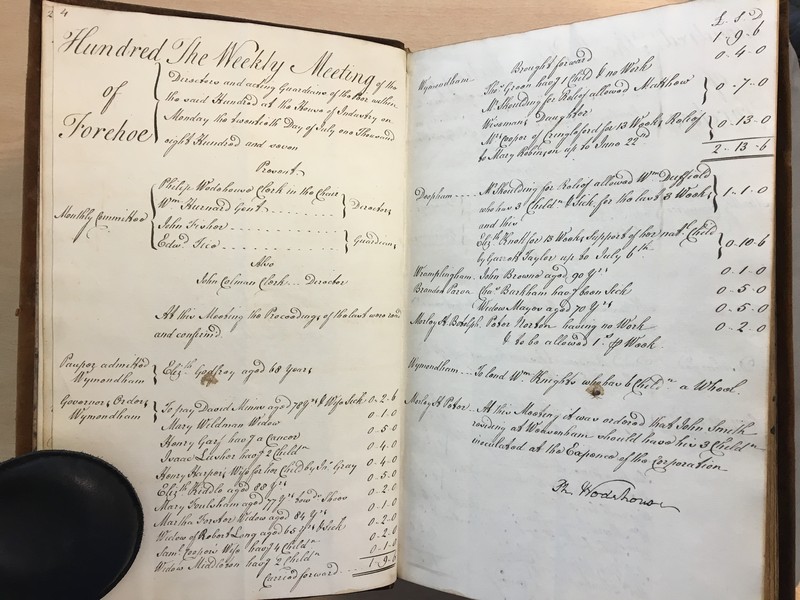 4
Hundred of Forehoe
The Weekly Meeting of the
Directors and acting Guardians of the Poor within
the said Hundred at the House of Industry on
Monday the twentieth Day of July one Thousand
eight Hundred and seven
Present
Monthly Committee
Philip Wodehouse Clerk in the Chair
Wm Hurnard Gent
John Fisher
Directors
Edwd Tice
Guardians
Also
John Colman Clerk Director
At this Meeting the Proceedings of the last were read
and confirmed
Pauper admitted
Wymondham
Elizth Godfrey aged 68 Years
Governors Orders
Wymondham
To pay David Minns aged 78 Yrs & Wife Sick 0-2-6
Mary Wildman Widow 0-1-0
Henry Gary havg a Cancer 0-5-0
Isaac Lusher havg 2 Childn 0-4-0
Henry Harpers Wife for her Child by Jas Gray 0-4-0
Elizth Kiddle aged 88 Yrs 0-5-0
Mary Tooksham aged 77 Yrs towds Shoes 0-2-0
Martha Forster Widow aged 84 Yrs 0-1-0
Widow of Robert Long aged 65 Yrs & Sick 0-2-0
Saml Coopers Wife havg 4 Childn 0-2-0
Widow Middleton havg 2 Childn 0-1-0
Carried forward 1-9-6
£ s D
Brought forward 1-9-6
Wymondham
Thos Green havg 1 Child & no Work 0-4-0
Mr Shoulding for Relief allowed
Wisemans Daughter 0-7-0
Mrs Cooper of for 13 Weeks Relief
to Mary Robinson up to June 22nd 0-13-0
2-13-6
Deopham
Mr Shoulding for Relief allowed Wm Duffield
who has 3 Childn & Sick for the last 3 Weeks
and this 1-1-0
Elizth Knall for 13 Weeks Support of her natl Child
by Garrett Taylor up to July 6th 0-10-6
Wramplingham
John Browne aged 90 Yrs 0-1-0
Brandon Parva
Chas Barkham havg been Sick 0-5-0
Widow Mayes aged 70 Yrs 0-5-0
Morley St Botolph
Peter Norton having no Work 0-2-0
& to be allowed 1s P Week
Wymondham
To lend Wm Knights who has 6 Childn a Wheel
Morley St Peter
At this Meeting it was ordered that John Smith
residing at should have his 3 Childn
inoculated at the Expence of the Corporation
Ph Wodehouse